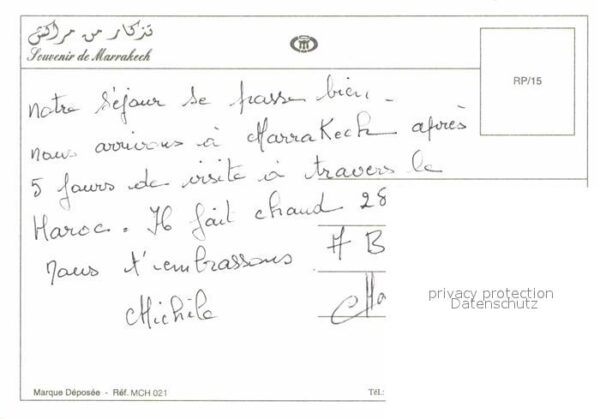 تذكار من مراكش
Souvenir de Marrakech
RP/15
notre séjour se passe bien.
nous arrivons à Marrakech après
5 jours de visite à travers le
Maroc. Il fait chaud 28
nous t'embrassons
Michile
A B
Ma
privacy protection
Datenschutz
Marque Déposée - Réf. MCH 021
Tél.: